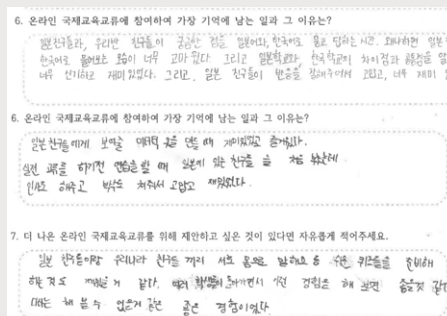 6. 온라인 국제교육교류에 참여하여 가장 기억에 남는 일과 그 이유는?
일본친구들과, 우리반 친구들이 궁금한 점을 일본어와, 한국어로 묻고 답하는 시간. 왜냐하면 일본
한국어로 물어보는 모습이 너무 고마웠다. 그리고 일본학교와, 한국학교의 차이점과 공통점을 알
너무 신기하고 재미있었다. 그리고, 일본 친구들이 반응을 잘해주어서 고맙고, 너무 재미
6. 온라인 국제교육교류에 참여하여 가장 기억에 남는 일과 그 이유는?
일본친구들에게 보여줄 을 만들 때 재미있었고 즐거웠다.
실전 교류를 하기전 연습을 할 때 일본에 있는 친구들을 처음 봤는데
인사도 해주고 박수도 쳐줘서 고맙고 재밌었다.
7. 더 나은 온라인 국제교육교류를 위해 제안하고 싶은 것이 있다면 자유롭게 적어주세요.
일본 친구들이랑 우리나라 친구들 끼리 서로 몸으로 말해요 등 퀴즈들을 준비해
하는 것도 재밌을 거 같다. 이런 경험을 해 보면 좋을것 같
때는 해 볼 수 없을거 같은 좋은 경험이었다